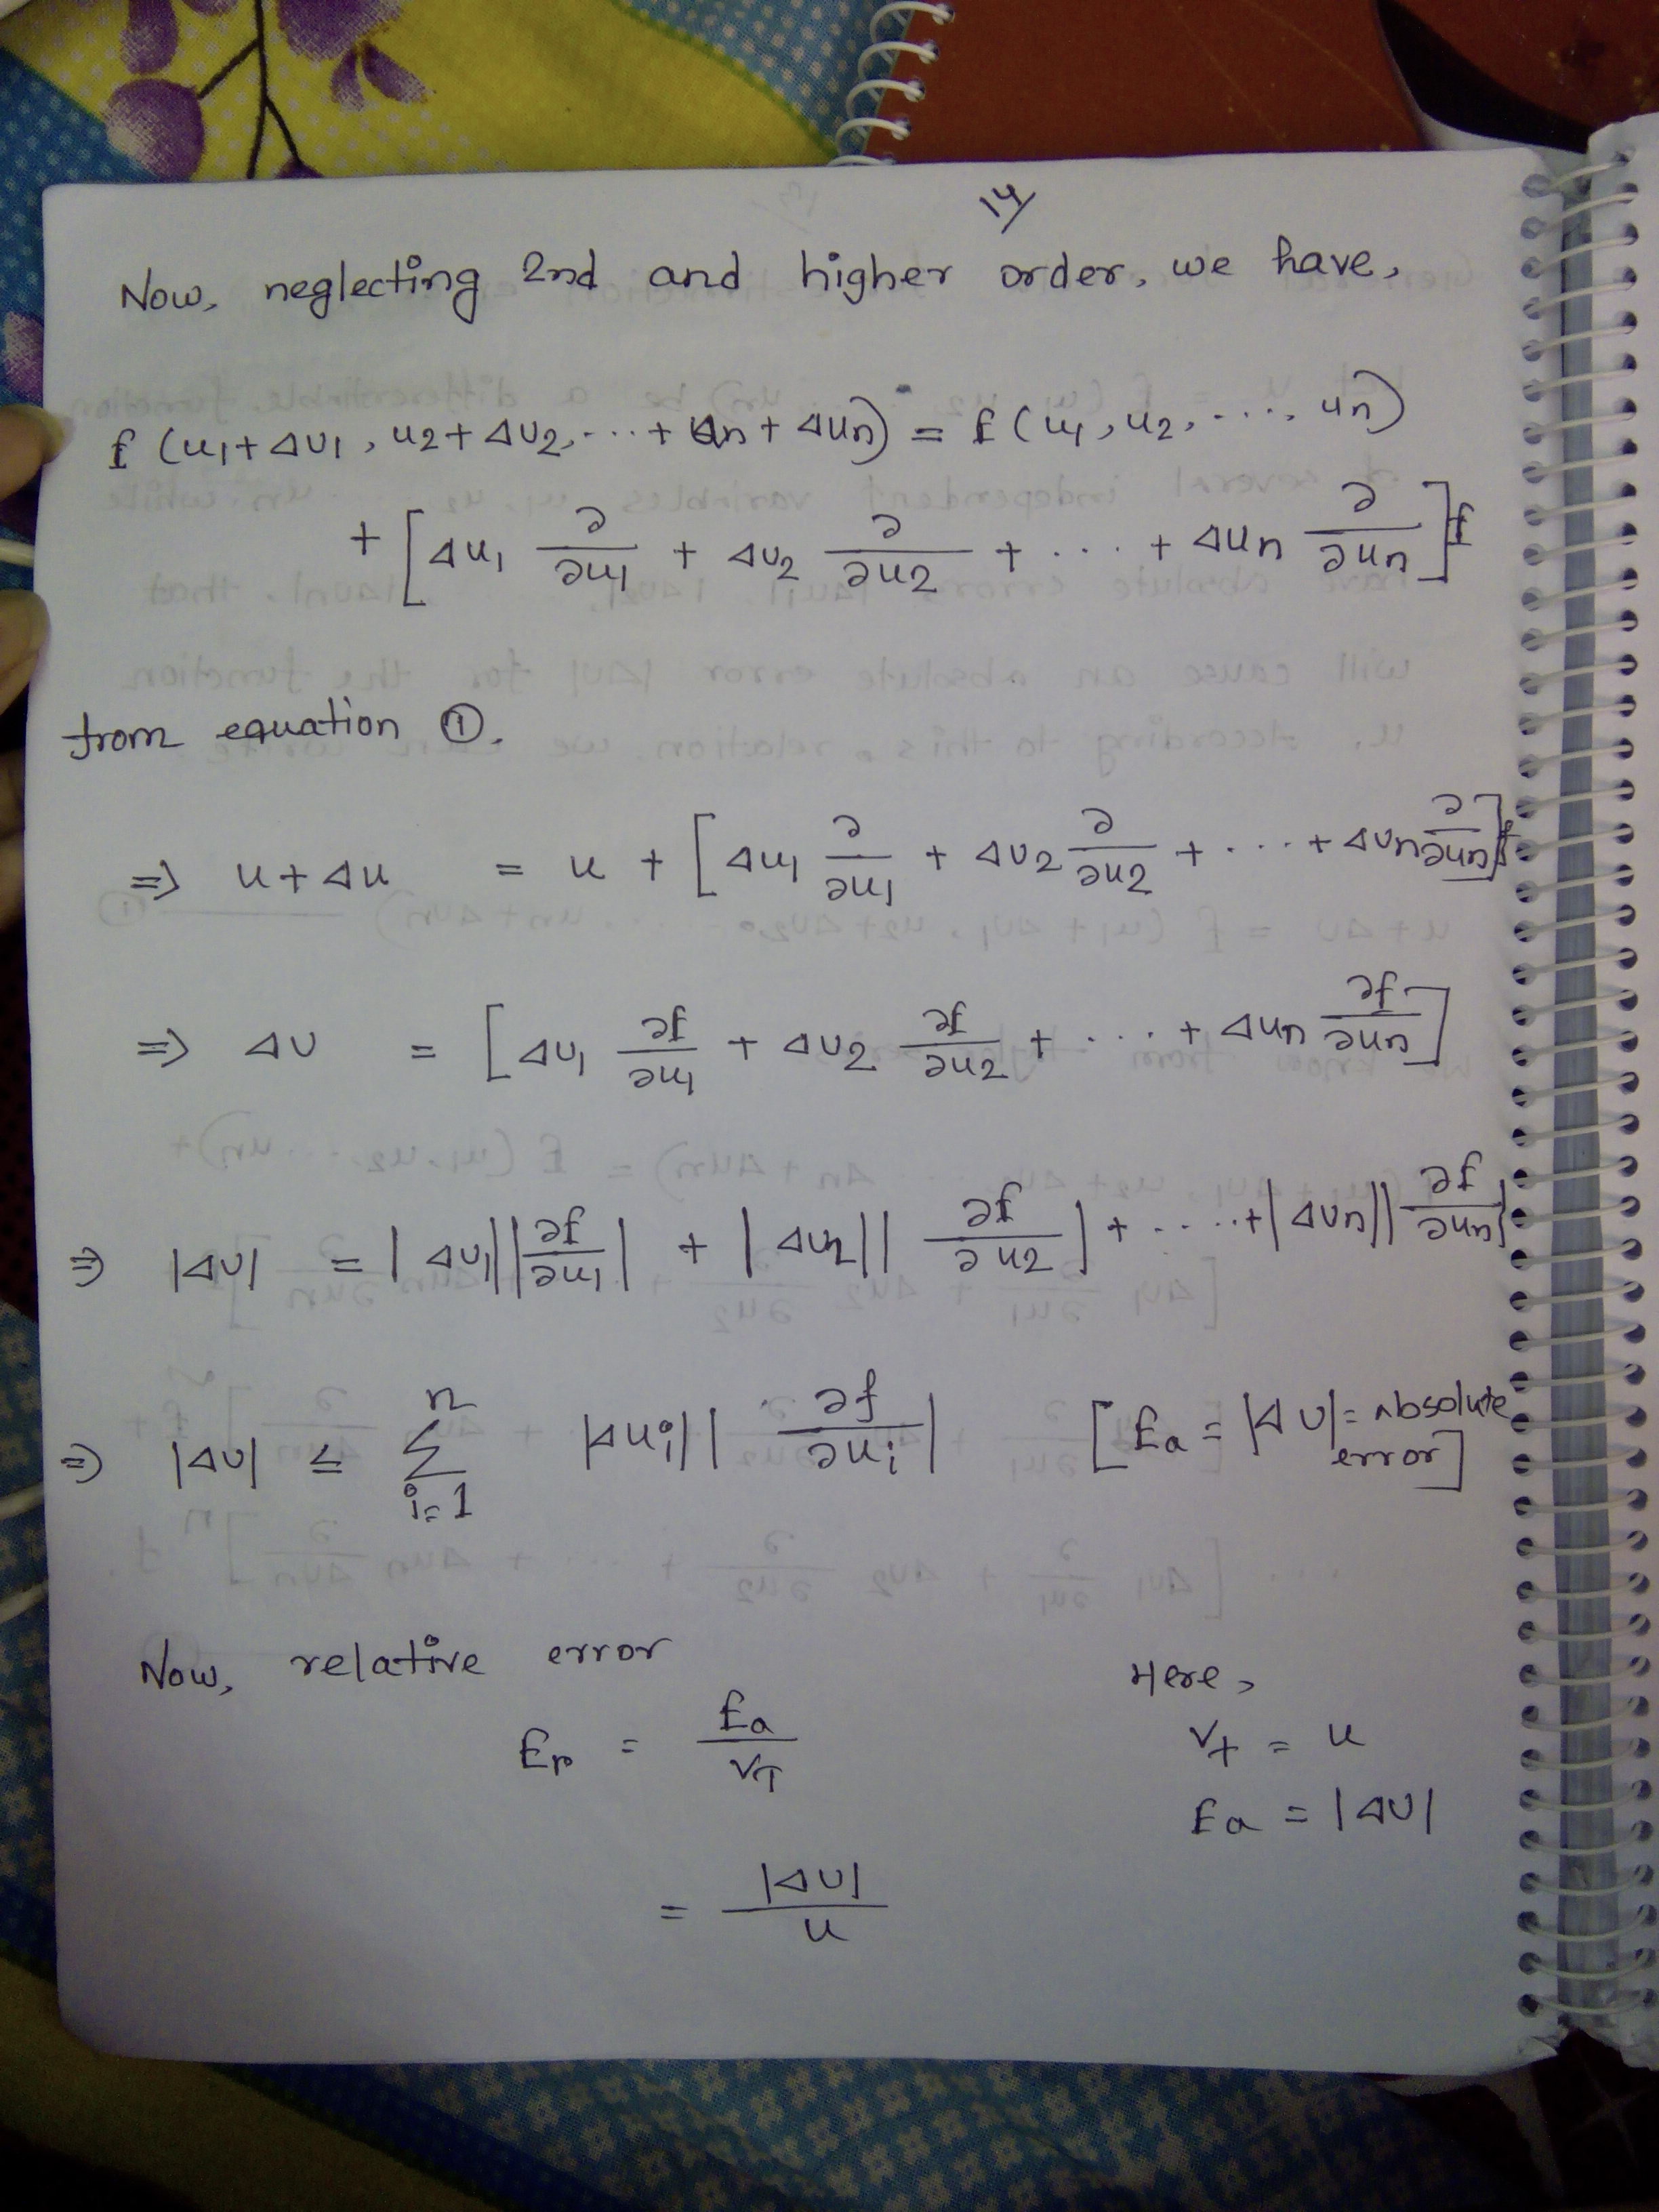 14/
Now, neglecting 2nd and higher order, we have,
f (u1+Δu1, u2+Δu2, ... + un + Δun) = f (u1, u2, ...., un)
+ [Δu1 ∂/∂u1 + Δu2 ∂/∂u2 + ... + Δun ∂/∂un] f
from equation ①,
⇒ u + Δu = u + [Δu1 ∂/∂u1 + Δu2 ∂/∂u2 + .... + Δun ∂/∂un] f
⇒ Δu = [Δu1 ∂f/∂u1 + Δu2 ∂f/∂u2 + .... + Δun ∂f/∂un]
⇒ |Δu| = |Δu1||∂f/∂u1| + |Δu2||∂f/∂u2| + ....+|Δun||∂f/∂un|
⇒ |Δu| ≤ n Σ i=1 |Δui||∂f/∂ui| [Ea = |Δu| = Absolute error]
Now, relative error
Er = Ea/VT
= |Δu|/u
Here,
Vt = u
Ea = |Δu|